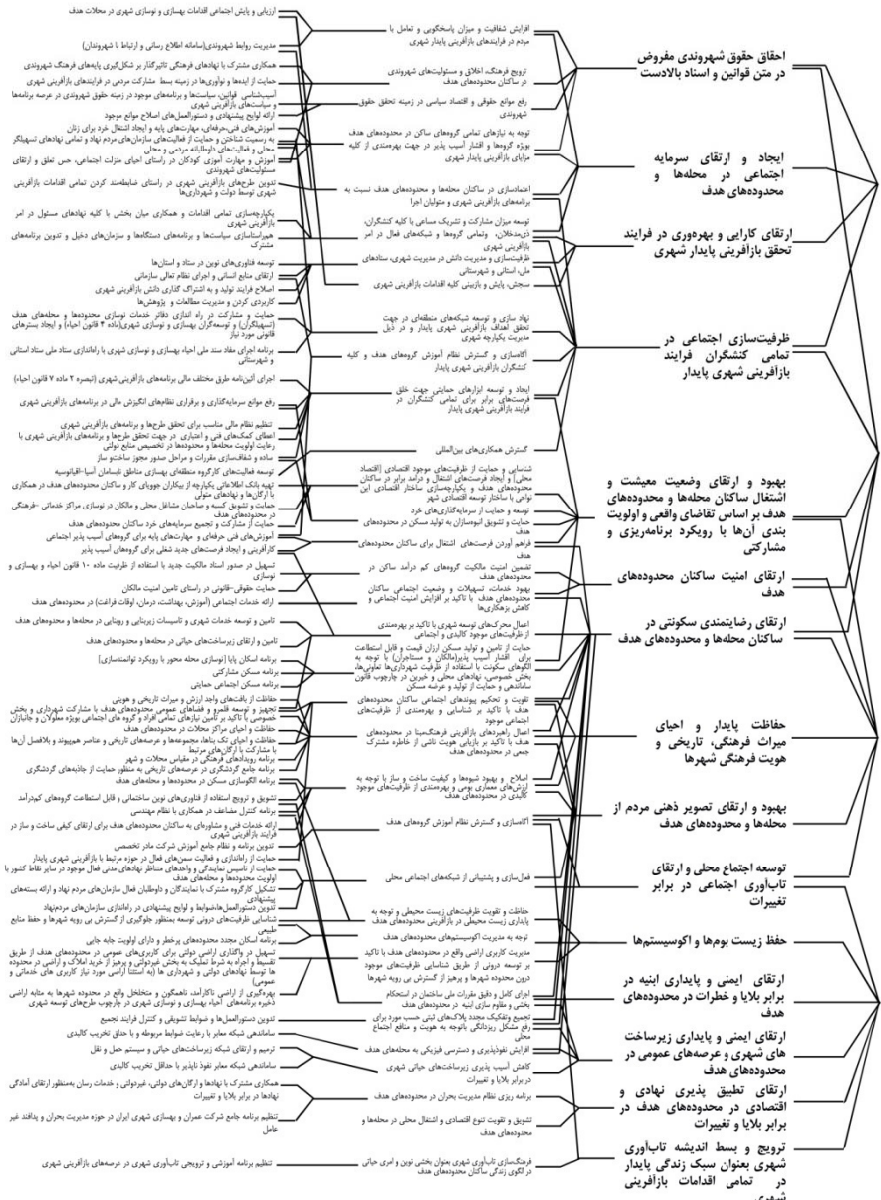 احقاق حقوق شهروندی مفروض
در متن قوانین و اسناد بالادست
ایجاد و ارتقای سرمایه
اجتماعی در محله‌ها و
محدوده‌های هدف
ارتقای کارایی و بهره‌وری در فرایند
تحقق بازآفرینی پایدار شهری
ظرفیت‌سازی اجتماعی در
تمامی کنشگران فرایند
بازآفرینی شهری پایدار
بهبود و ارتقای وضعیت معیشت و
اشتغال ساکنان محله‌ها و محدوده‌های
هدف بر اساس تقاضای واقعی و اولویت
بندی آن‌ها با رویکرد برنامه‌ریزی و
مشارکتی
ارتقای امنیت ساکنان محدوده‌های
هدف
ارتقای رضایتمندی سکونتی در
ساکنان محله‌ها و محدوده‌های هدف
حفاظت پایدار و احیای
میراث فرهنگی، تاریخی و
هویت فرهنگی شهرها
بهبود و ارتقای تصویر ذهنی مردم از
محله‌ها و محدوده‌های هدف
توسعه اجتماع محلی و ارتقای
تاب‌آوری اجتماعی در برابر
تغییرات
حفظ زیست بوم‌ها و اکوسیستم‌ها
ارتقای ایمنی و پایداری ابنیه در
برابر بلایا و خطرات در محدوده‌های
هدف
ارتقای ایمنی و پایداری زیرساخت
های شهری و عرصه‌های عمومی در
محدوده‌های هدف
ارتقای تطبیق پذیری نهادی و
اقتصادی در محدوده‌های هدف در
برابر بلایا و تغییرات
ترویج و بسط اندیشه تاب‌آوری
شهری بعنوان سبک زندگی پایدار
در تمامی اقدامات بازآفرینی
شهری
افزایش شفافیت و میزان پاسخگویی و تعامل با
مردم در فرایندهای بازآفرینی پایدار شهری
ترویج فرهنگ، اخلاق و مسئولیت‌های شهروندی
در ساکنان محدوده‌های هدف
رفع موانع حقوقی و اقتصاد سیاسی در زمینه تحقق حقوق
شهروندی
توجه به نیازهای تمامی گروه‌های ساکن در محدوده‌های هدف
بویژه گروه‌ها و اقشار آسیب پذیر در جهت بهره‌مندی از کلیه
مزایای بازآفرینی پایدار شهری
اعتمادسازی در ساکنان محله‌ها و محدوده‌های هدف نسبت به
برنامه‌های بازآفرینی شهری و متولیان اجرا
توسعه میزان مشارکت و تشریک مساعی با کلیه کنشگران،
ذی‌مدخلان، وتمامی گروه‌ها و شبکه‌های فعال در امر
بازآفرینی شهری
ظرفیت‌سازی و مدیریت دانش در مدیریت شهری، ستادهای
ملی، استانی و شهرستانی
سنجش، پایش و بازبینی کلیه اقدامات بازآفرینی شهری
نهاد سازی و توسعه شبکه‌های منطقه‌ای در جهت
تحقق اهداف بازآفرینی شهری پایدار و در ذیل
مدیریت یکپارچه شهری
آگاه‌سازی و گسترش نظام آموزش گروه‌های هدف و کلیه
کنشگران بازآفرینی شهری پایدار
ایجاد و توسعه ابزارهای حمایتی جهت خلق
فرصت‌های برابر برای تمامی کنشگران در
فرایند بازآفرینی شهری پایدار
گسترش همکاری‌های بین‌المللی
شناسایی و حمایت از ظرفیت‌های موجود اقتصادی [اقتصاد
محلی] و ایجاد فرصت‌های اشتغال و درآمد برابر در ساکنان
محدوده‌های هدف و یکپارچه‌سازی ساختار اقتصادی این
نواحی با ساختار توسعه اقتصادی شهر
توسعه و حمایت از سرمایه‌گذاری‌های خرد
حمایت و تشویق انبوه‌سازان به تولید مسکن در محدوده‌های
هدف
فراهم آوردن فرصت‌های اشتغال برای ساکنان محدوده‌های
هدف
تضمین امنیت مالکیت گروه‌های کم درآمد ساکن در
محدوده‌های هدف
بهبود خدمات، تسهیلات و وضعیت اجتماعی ساکنان
محدوده‌های هدف با تاکید بر افزایش امنیت اجتماعی و
کاهش بزهکاری‌ها
اعمال محرک‌های توسعه شهری با تاکید بر بهره‌مندی
از ظرفیت‌های موجود کالبدی و اجتماعی
حمایت از تامین و تولید مسکن ارزان قیمت و قابل استطاعت
برای اقشار آسیب پذیر(مالکان و مستاجران) با توجه به
الگوهای سکونت با استفاده از ظرفیت شهرداری‌ها تعاونی‌ها،
بخش خصوصی، نهادهای محلی و خیرین در چارچوب قانون
ساماندهی و حمایت از تولید و عرضه مسکن
تقویت و تحکیم پیوندهای اجتماعی ساکنان محدوده‌های
هدف با تاکید بر شناسایی و بهره‌مندی از ظرفیت‌های
اجتماعی موجود
اعمال راهبردهای بازآفرینی فرهنگ‌مبنا در محدوده‌های
هدف با تاکید بر بازیابی هویت ناشی از خاطره مشترک
جمعی در محدوده‌های هدف
اصلاح و بهبود شیوه‌ها و کیفیت ساخت و ساز با توجه به
ارزش‌های معماری بومی و بهره‌مندی از ظرفیت‌های موجود
کالبدی در محدوده‌های هدف
آگاه‌سازی و گسترش نظام آموزش گروه‌های هدف
فعال‌سازی و پشتیبانی از شبکه‌های اجتماعی محلی
حفاظت و تقویت ظرفیت‌های زیست محیطی و توجه به
پایداری زیست محیطی در بازآفرینی محدوده‌های هدف
توجه به مدیریت اکوسیستم‌های محدوده‌های هدف
مدیریت کاربری اراضی واقع در محدوده‌های هدف با تاکید
بر توسعه درونی از طریق شناسایی ظرفیت‌های موجود
درون محدوده شهرها و پرهیز از گسترش بی رویه شهرها
اجرای کامل و دقیق مقررات ملی ساختمان در استحکام
بخشی و مقاوم سازی ابنیه در محدوده‌های هدف
تجمیع وتفکیک مجدد پلاک‌های ثبتی حسب مورد برای
رفع مشکل ریزدانگی باتوجه به هویت و منافع اجتماع
محلی
افزایش نفوذپذیری و دسترسی فیزیکی به محله‌های هدف
کاهش آسیب پذیری زیرساخت‌های حیاتی شهری
دربرابر بلایا و تغییرات
برنامه ریزی نظام مدیریت بحران در محدوده‌های هدف
تشویق و تقویت تنوع اقتصادی و اشتغال محلی در محله‌ها و
محدوده‌های هدف
فرهنگ‌سازی تاب‌آوری شهری بعنوان بخشی نوین و امری حیاتی
در الگوی زندگی ساکنان محدوده‌های هدف
ارزیابی و پایش اجتماعی اقدامات بهسازی و نوسازی شهری در محلات هدف
مدیریت روابط شهروندی(سامانه اطلاع رسانی و ارتباط با شهروندان)
همکاری مشترک با نهادهای فرهنگی تاثیرگذار بر شکل‌گیری پایه‌های فرهنگ شهروندی
حمایت از ایده‌ها و نوآوری‌ها در زمینه بسط مشارکت مردمی در فرایندهای بازآفرینی شهری
آسیب‌شناسی قوانین، سیاست‌ها و برنامه‌های موجود در زمینه حقوق شهروندی در عرصه برنامه‌ها
و سیاست‌های بازآفرینی شهری
ارائه لوایح پیشنهادی و دستورالعمل‌های اصلاح موانع موجود
آموزش‌های فنی-حرفه‌ای، مهارت‌های پایه و ایجاد اشتغال خرد برای زنان
به رسمیت شناختن و حمایت از فعالیت‌های سازمان‌های مردم نهاد و تمامی نهادهای تسهیلگر
محلی و فعالیت‌های داوطلبانه مردمی و محلی
آموزش و مهارت آموزی کودکان در راستای احیای منزلت اجتماعی، حس تعلق و ارتقای
مسئولیت‌های شهروندی
تدوین طرح‌های بازآفرینی شهری در راستای ضابطه‌مند کردن تمامی اقدامات بازآفرینی
شهری توسط دولت و شهرداری‌ها
یکپارچه‌سازی تمامی اقدامات و همکاری میان بخش با کلیه نهادهای مسئول در امر
بازآفرینی شهری
هم‌راستاسازی سیاست‌ها و برنامه‌های دستگاه‌ها و سازمان‌های دخیل و تدوین برنامه‌های
مشترک
توسعه فناوری‌های نوین در ستاد و استان‌ها
ارتقای منابع انسانی و اجرای نظام تعالی سازمانی
اصلاح فرایند تولید و به اشتراک گذاری دانش بازآفرینی شهری
کاربردی کردن و مدیریت مطالعات و پژوهش‌ها
حمایت و مشارکت در راه اندازی دفاتر خدمات نوسازی محدوده‌ها و محله‌های هدف
(تسهیلگران) و توسعه‌گران بهسازی و نوسازی شهری(ماده ۴ قانون احیاء) و ایجاد بسترهای
قانونی مورد نیاز
برنامه اجرای مفاد سند ملی احیاء بهسازی و نوسازی شهری با راه‌اندازی ستاد ملی ستاد استانی
و شهرستانی
اجرای آئین‌نامه طرق مختلف مالی برنامه‌های بازآفرینی‌شهری (تبصره ۲ ماده ۷ قانون احیاء)
رفع موانع سرمایه‌گذاری و برقراری نظام‌های انگیزش مالی در برنامه‌های بازآفرینی شهری
تنظیم نظام مالی مناسب برای تحقق طرح‌ها و برنامه‌های بازآفرینی شهری
اعطای کمک‌های فنی و اعتباری در جهت تحقق طرح‌ها و برنامه‌های بازآفرینی شهری با
رعایت اولویت محله‌ها و محدوده‌ها در تخصیص منابع دولتی
ساده و شفاف‌سازی مقررات و مراحل صدور مجوز ساخت‌و ساز
توسعه فعالیت‌های کارگروه منطقه‌ای بهسازی مناطق نابسامان آسیا-اقیانوسیه
تهیه بانک اطلاعاتی یکپارچه از بیکاران جویای کار و ساکنان محدوده‌های هدف در همکاری
با ارگان‌ها و نهادهای متولی
حمایت و تشویق کسبه و صاحبان مشاغل محلی و مالکان در نوسازی مراکز خدماتی -فرهنگی
در محدوده‌های هدف
حمایت از مشارکت و تجمیع سرمایه‌های خرد ساکنان محدوده‌های هدف
آموزش‌های فنی حرفه‌ای و مهارت‌های پایه برای گروه‌های آسیب پذیر اجتماعی
کارآفرینی و ایجاد فرصت‌های جدید شغلی برای گروه‌های آسیب پذیر
تسهیل در صدور اسناد مالکیت جدید با استفاده از ظرفیت ماده ۱۰ قانون احیاء و بهسازی و
نوسازی
حمایت حقوقی-قانونی در راستای تامین امنیت مالکان
ارائه خدمات اجتماعی (آموزش، بهداشت، درمان، اوقات فراغت) در محدوده‌های هدف
تامین و توسعه خدمات شهری و تاسیسات زیربنایی و روبنایی در محله‌ها و محدوده‌های هدف
تامین و ارتقای زیرساخت‌های حیاتی در محله‌ها و محدوده‌های هدف
برنامه اسکان پایا [نوسازی محله محور با رویکرد توانمندسازی]
برنامه مسکن مشارکتی
برنامه مسکن اجتماعی حمایتی
حفاظت از بافت‌های واجد ارزش و میراث تاریخی و هویتی
تجهیز و توسعه قلمرو و فضاهای عمومی محدوده‌های هدف با مشارکت شهرداری و بخش
خصوصی با تاکید بر تامین نیازهای تمامی افراد و گروه های اجتماعی بویژه معلولان و جانبازان
حفاظت و احیای مراکز محلات در محدوده‌های هدف
حفاظت و احیای تک بناها، مجموعه‌ها و عرصه‌های تاریخی و عناصر هم‌پیوند و بلافصل آن‌ها
با مشارکت با ارگان‌های مرتبط
برنامه رویدادهای فرهنگی در مقیاس محلات و شهر
برنامه جامع گردشگری در عرصه‌های تاریخی به منظور حمایت از جاذبه‌های گردشگری
برنامه الگوسازی مسکن در محدوده‌ها و محله‌های هدف
تشویق و ترویج استفاده از فناوری‌های نوین ساختمانی و قابل استطاعت گروه‌های کم‌درآمد
برنامه کنترل مضاعف در همکاری با نظام مهندسی
ارائه خدمات فنی و مشاوره‌ای به ساکنان محدوده‌های هدف برای ارتقای کیفی ساخت و ساز در
فرایند بازآفرینی شهری
تدوین برنامه و نظام جامع آموزش شرکت مادر تخصصی
حمایت از راه‌اندازی و فعالیت سمن‌های فعال در حوزه مرتبط با بازآفرینی شهری پایدار
حمایت از تاسیس نمایندگی و واحدهای متناظر نهادهای‌مدنی فعال موجود در سایر نقاط کشور با
اولویت محدوده‌ها و محله‌های هدف
تشکیل کارگروه مشترک با نمایندگان و داوطلبان فعال سازمان‌های مردم نهاد و ارائه بسته‌های
پیشنهادی
تدوین دستورالعمل‌ها،ضوابط و لوایح پیشنهادی در راه‌اندازی سازمان‌های مردم‌نهاد
شناسایی ظرفیت‌های درونی توسعه بمنظور جلوگیری از گسترش بی رویه شهرها و حفظ منابع
طبیعی
برنامه اسکان مجدد محدوده‌های پرخطر و دارای اولویت جابه جایی
تسهیل در واگذاری اراضی دولتی برای کاربری‌های عمومی در محدوده‌های هدف از طریق
تقسیط و اجراء به شرط تملیک به بخش غیردولتی و پرهیز از خرید املاک و اراضی در محدوده
ها توسط نهادهای دولتی و شهرداری ها (به استثنا اراضی مورد نیاز کاربری های خدماتی و
عمومی)
بهره‌گیری از اراضی ناکارآمد، ناهمگون و متخلخل واقع در محدوده شهرها به مثابه اراضی
ذخیره برنامه‌های احیاء بهسازی و نوسازی شهری در چارچوب طرح‌های توسعه شهری
تدوین دستورالعمل‌ها و ضوابط تشویقی و کنترل فرایند تجمیع
ساماندهی شبکه معابر با رعایت ضوابط مربوطه و با حداقل تخریب کالبدی
ترمیم و ارتقای شبکه زیرساخت‌های حیاتی و سیستم حمل و نقل
ساماندهی شبکه معابر نفوذ ناپذیر با حداقل تخریب کالبدی
همکاری مشترک با نهادها و ارگان‌های دولتی، غیردولتی و خدمات رسان به‌منظور ارتقای آمادگی
نهادها در برابر بلایا و تغییرات
تنظیم برنامه جامع شرکت عمران و بهسازی شهری ایران در حوزه مدیریت بحران و پدافند غیر
عامل
تنظیم برنامه آموزشی و ترویجی تاب‌آوری شهری در عرصه‌های بازآفرینی شهری